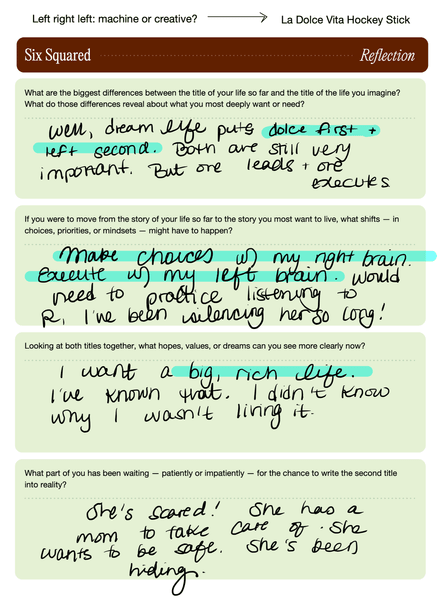 Left right left: machine or creative? → La Dolce Vita Hockey Stick
Six Squared Reflection
What are the biggest differences between the title of your life so far and the title of the life you imagine?
What do those differences reveal about what you most deeply want or need?
Well, dream life puts dolce first +
left second. Both are still very
important. But one leads + one
executes
If you were to move from the story of your life so far to the story you most want to live, what shifts — in
choices, priorities, or mindsets — might have to happen?
Make choices w) my right brain.
Execute w) my left brain. Would
need to practice listening to
R, I've been silencing her so long!
Looking at both titles together, what hopes, values, or dreams can you see more clearly now?
I want a big, rich life.
I've known that. I didn't know
why I wasn't living it.
What part of you has been waiting — patiently or impatiently — for the chance to write the second title
into reality?
She's scared! She has a
mom to take care of. She
wants to be safe. She's been
hiding.